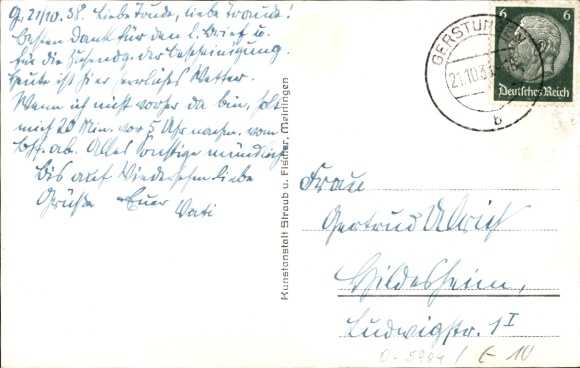 G, 21/10. 38. Liebe Trude, liebe Traudel!
besten Dank für den l. Brief u.
für die Zusendg. der Bescheinigung.
Heute ist hier herrliches Wetter.
Wenn ich nicht vorher da bin, holt
mich 20 Min. vor 5 Uhr nachm. vom
Bhf. ab. Alles Sonstige mündlich
Bis auf Wiedersehen liebe
Grüße Euer
Vati
Kunstanstalt Straub u. Fischer, Meiningen
GERSTUN
21.10.3
b
6 6
Deutsches Reich
Frau
Gertrud Ullrich
Hildesheim,
Ludwigstr. 1 I